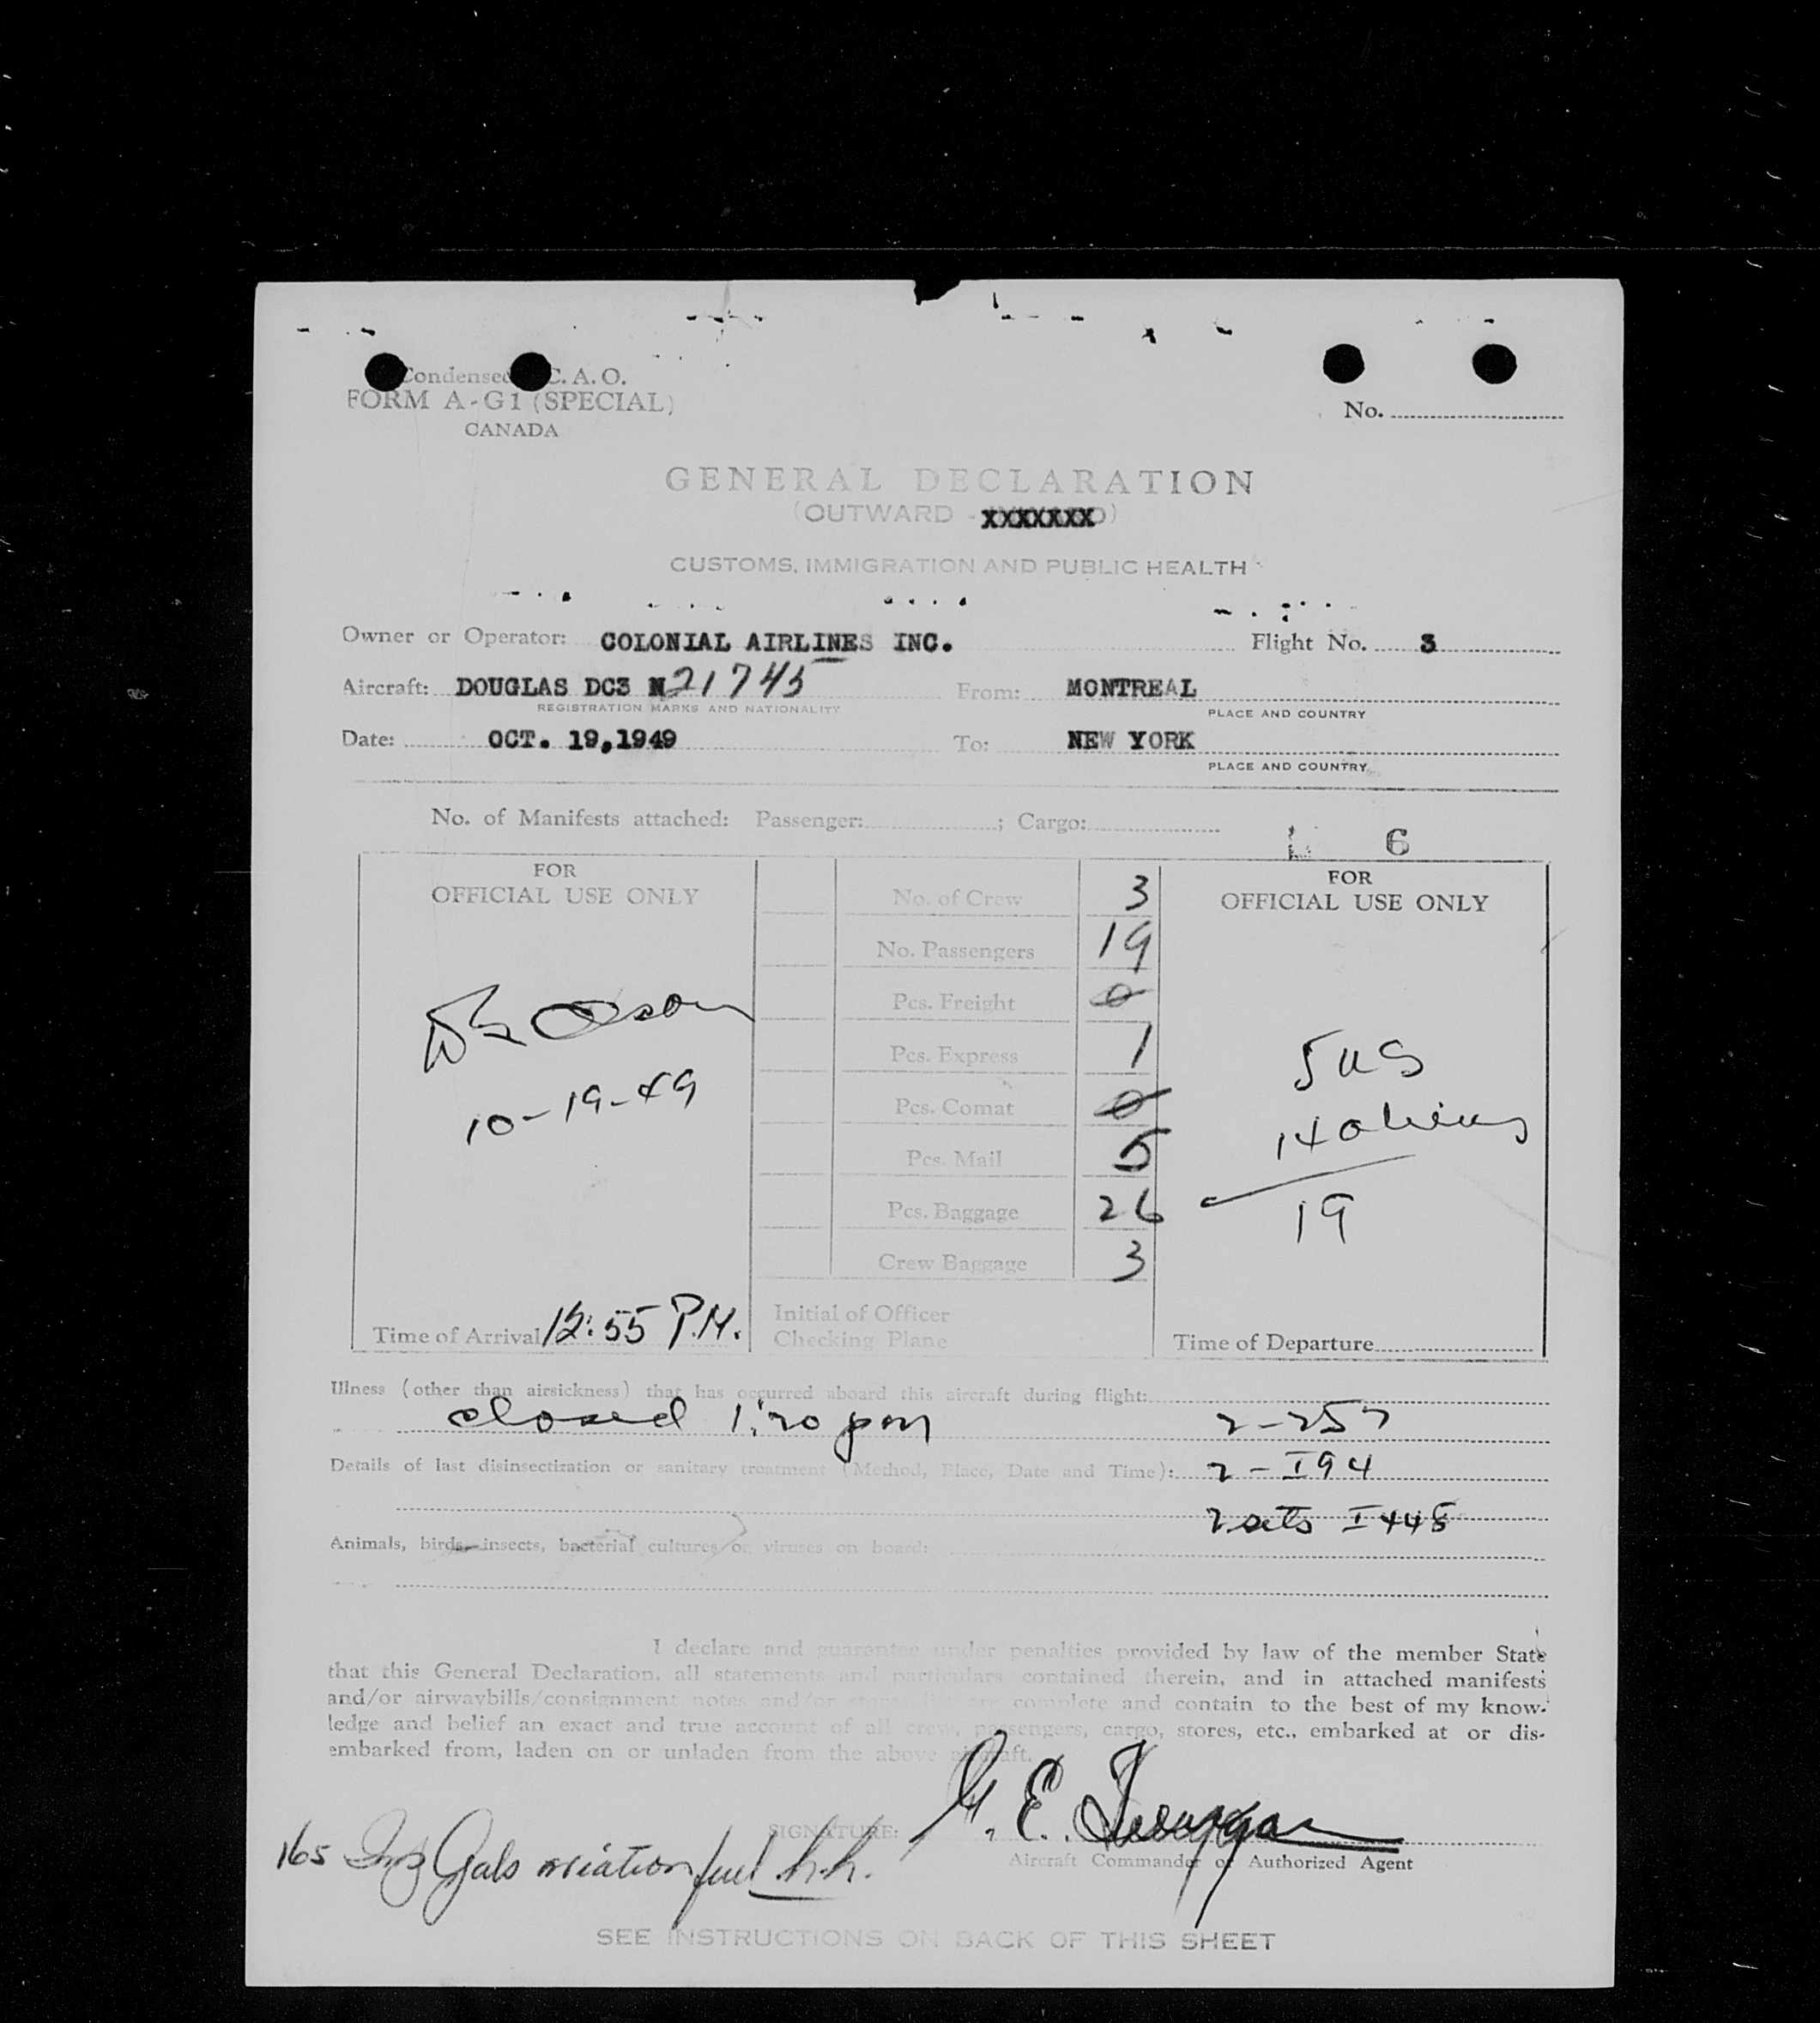 Condensed C. A. O.
FORM A-G1 (SPECIAL)
CANADA
No.
GENERAL DECLARATION
(OUTWARD - XXXXXXX)
CUSTOMS, IMMIGRATION AND PUBLIC HEALTH
Owner or Operator: COLONIAL AIRLINES INC. Flight No. 3
Aircraft: DOUGLAS DC3 N21745 From: MONTREAL
REGISTRATION MARKS AND NATIONALITY PLACE AND COUNTRY
Date: OCT. 19,1949 To: NEW YORK
PLACE AND COUNTRY
No. of Manifests attached: Passenger: ; Cargo:
6
FOR
OFFICIAL USE ONLY
10-19-49
Time of Arrival 12:55 P.M.
No. of Crew 3
No. Passengers 19
Pcs. Freight 0
Pcs. Express 1
Pcs. Comat 0
Pcs. Mail 5
Pcs. Baggage 26
Crew Baggage 3
Initial of Officer
Checking Plane
FOR
OFFICIAL USE ONLY
5 US
14 aliens
19
Time of Departure
Illness (other than airsickness) that has occurred aboard this aircraft during flight:
closed 1:20 pm 2-257
Details of last disinsectization or sanitary treatment (Method, Place, Date and Time): 2-I94
2 sets I 448
Animals, birds, insects, bacterial cultures or viruses on board:
I declare and guarantee under penalties provided by law of the member State
that this General Declaration, all statements and particulars contained therein, and in attached manifests
and/or airwaybills/consignment notes and/or stores list are complete and contain to the best of my know-
ledge and belief an exact and true account of all crew, passengers, cargo, stores, etc., embarked at or dis-
embarked from, laden on or unladen from the above aircraft.
SIGNATURE: G. E.
Aircraft Commander or Authorized Agent
165 Img Gals aviation fuel h.h.
SEE INSTRUCTIONS ON BACK OF THIS SHEET